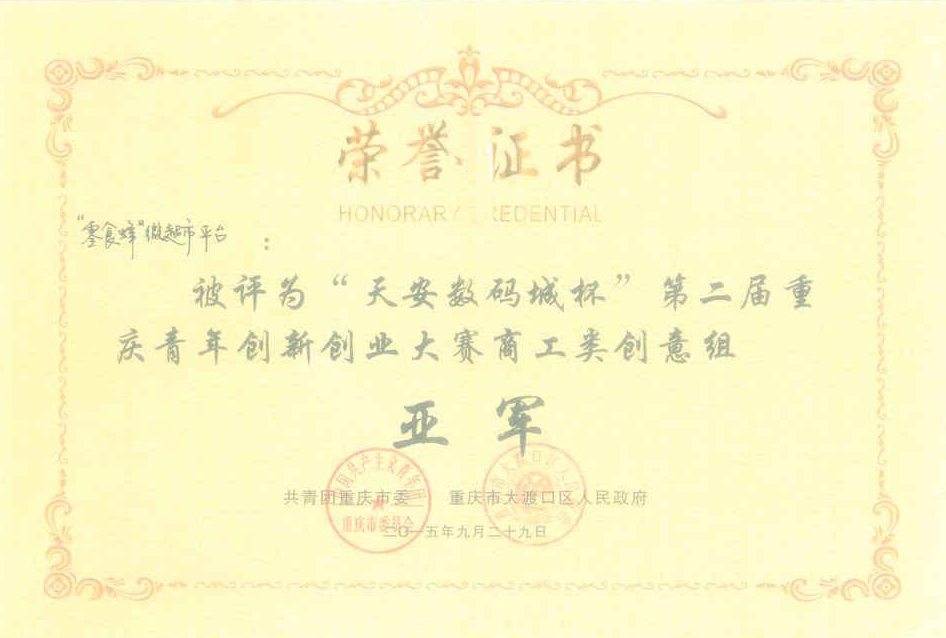 荣誉证书
HONORARY CREDENTIAL
“零食蜂”微超市平台：
被评为“天安数码城杯”第二届重
庆青年创新创业大赛商工类创意组
亚军
共青团重庆市委 重庆市大渡口区人民政府
二〇一五年九月二十九日
中国共产主义青年团
重庆市委员会